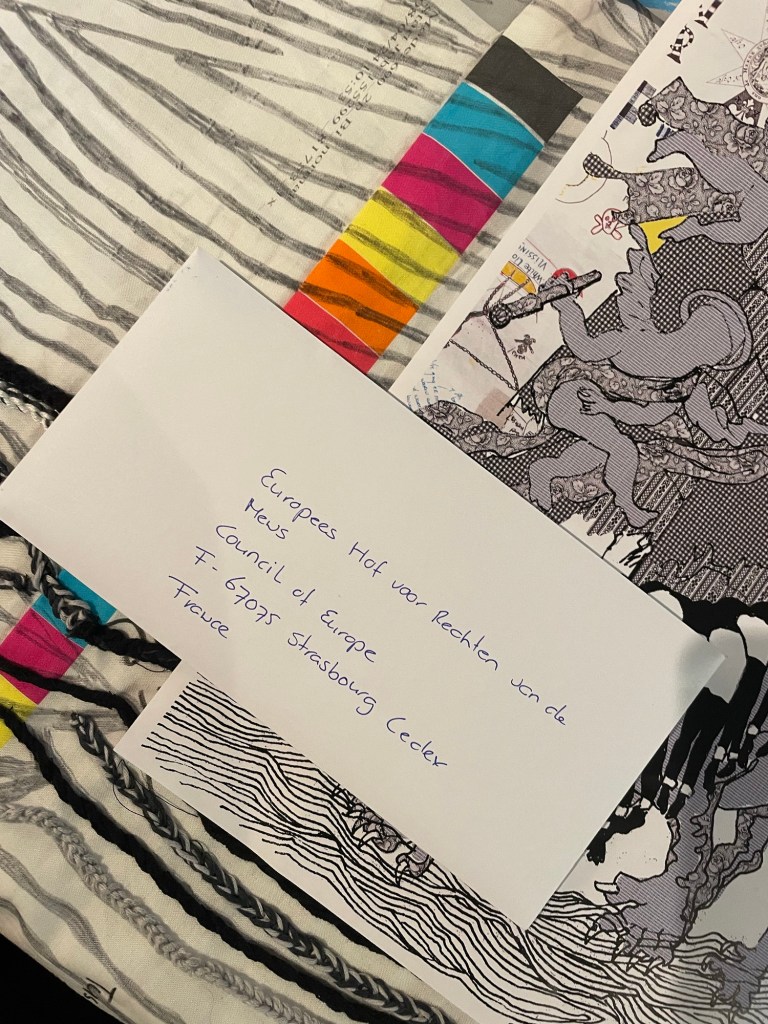 Europees Hof voor Rechten van de
Mens
Council of Europe
F- 67075 Strasbourg Cedex
France
White Lio
VLISSIN